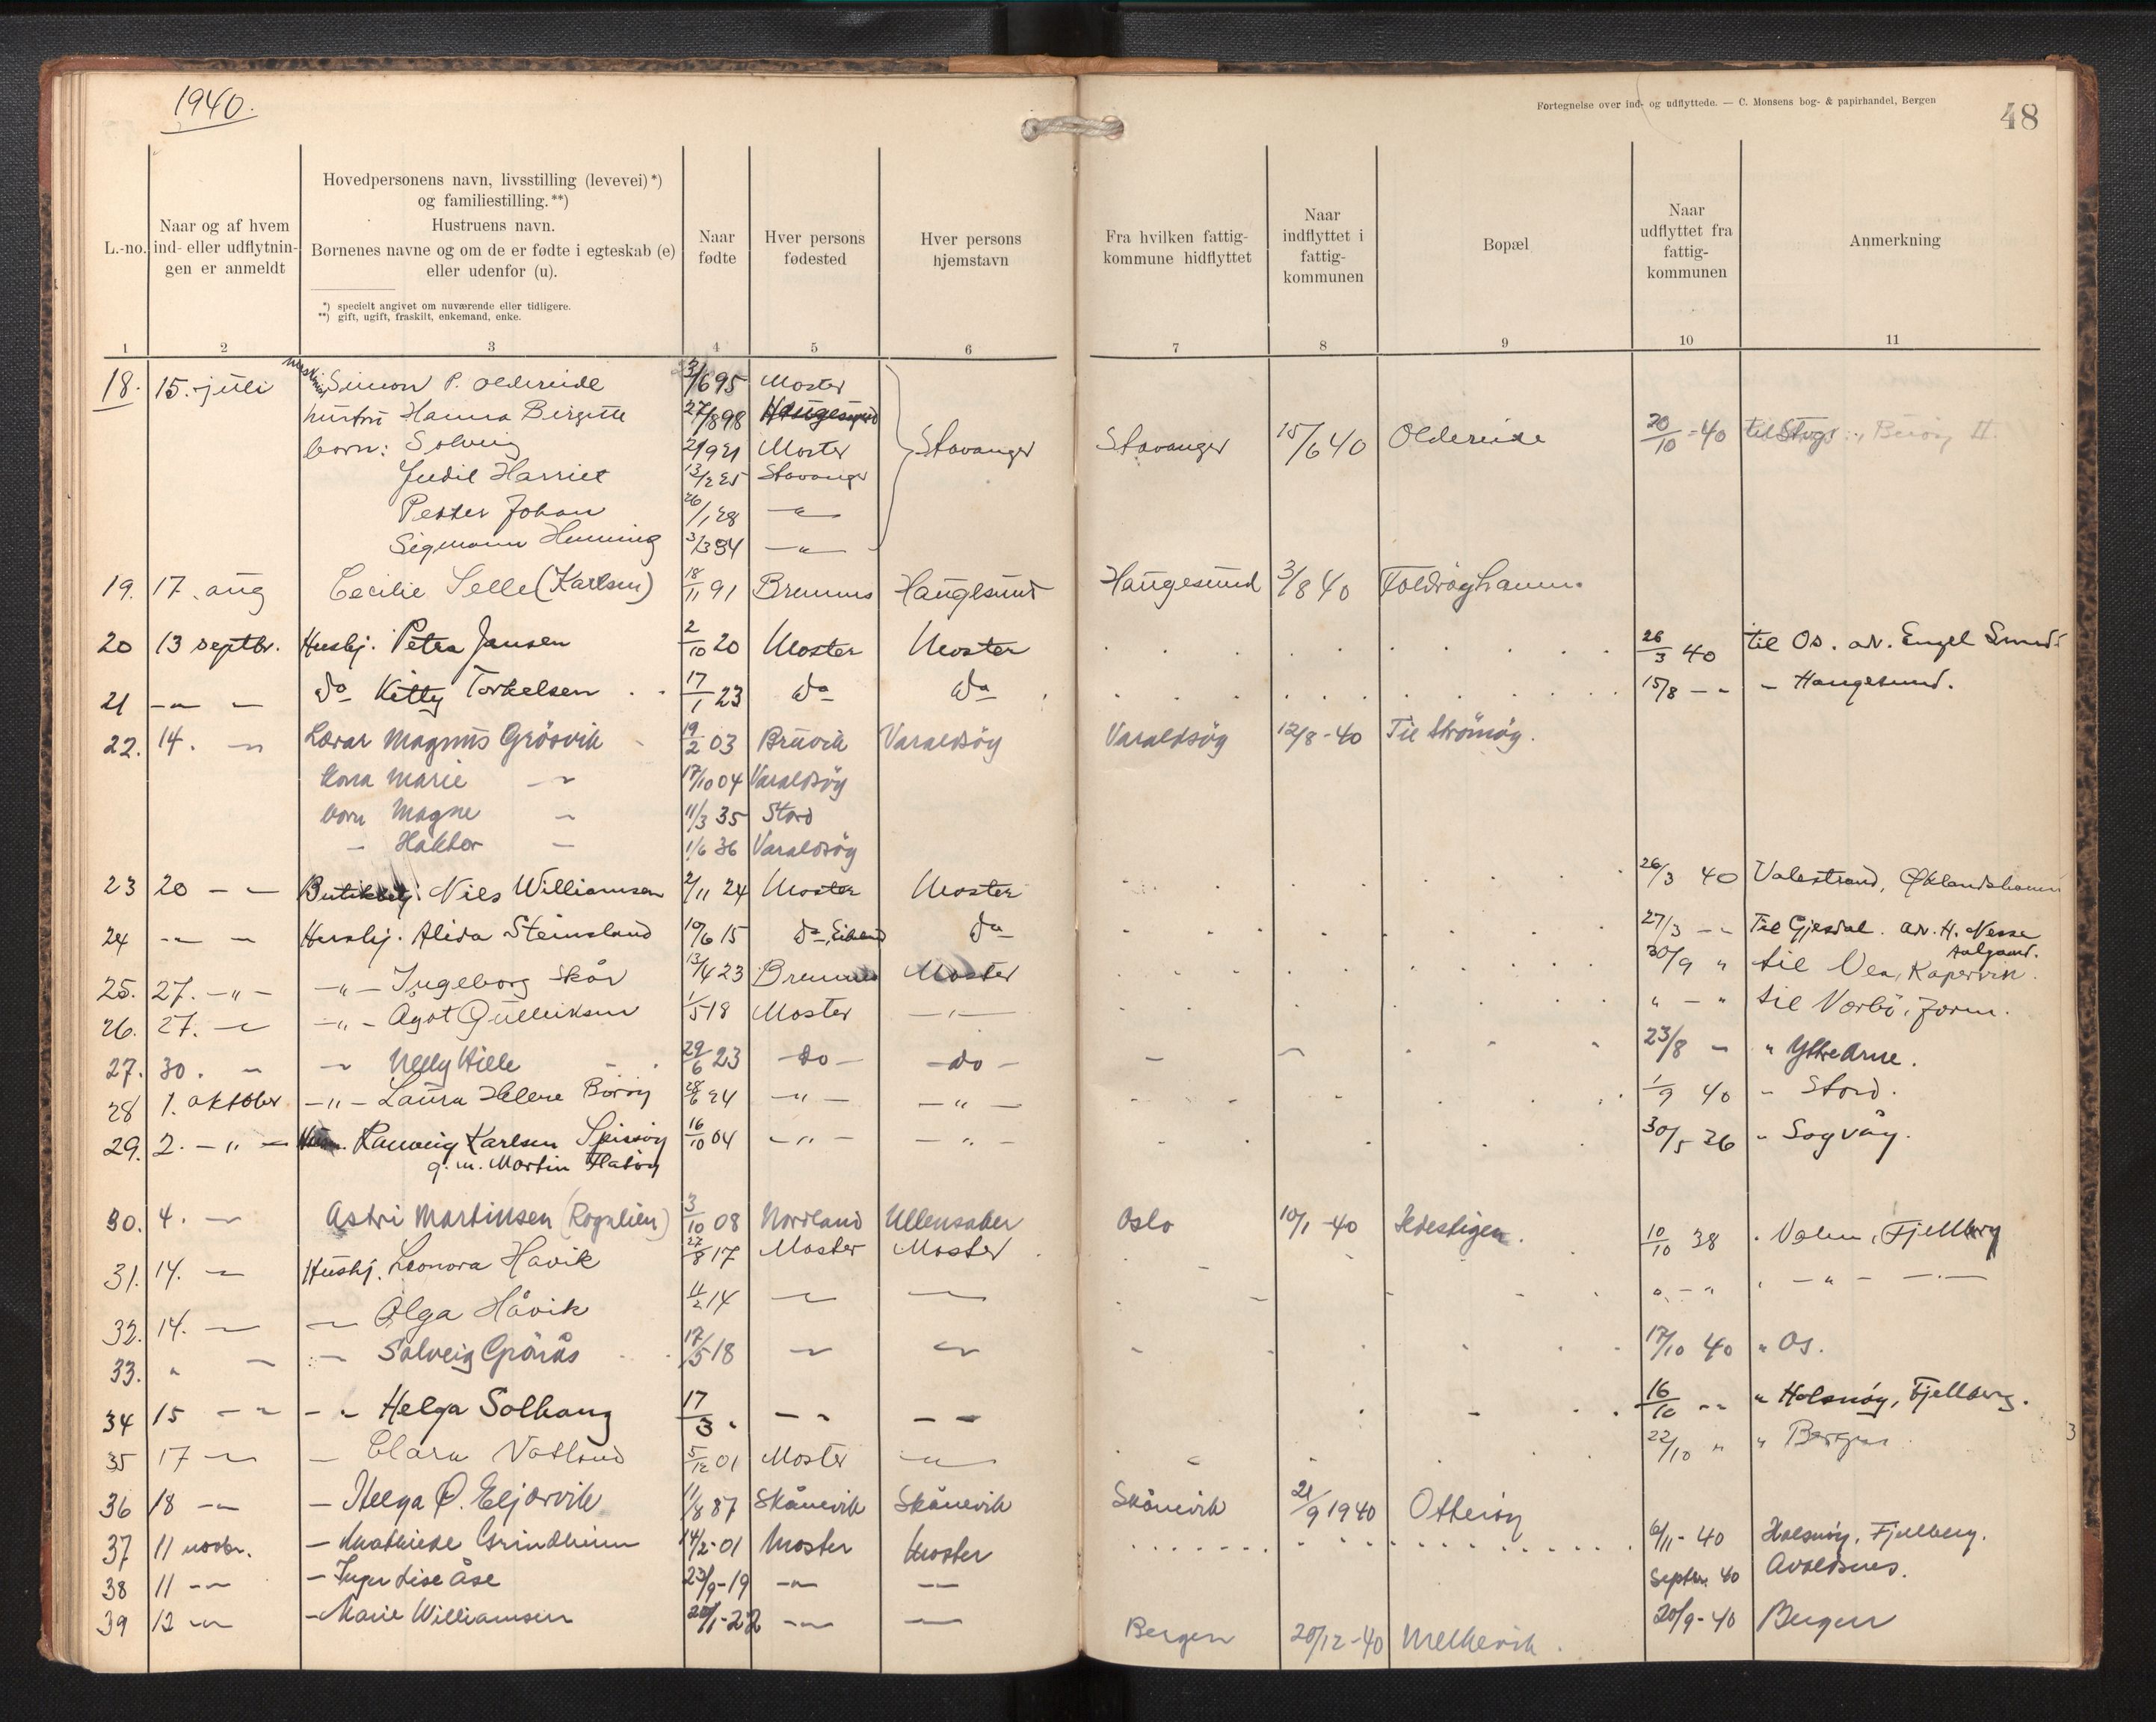 1940.
Fortegnelse over ind- og udflyttede. — C. Monsens bog- & papirhandel, Bergen
48
L.-no.
Naar og af hvem ind- eller udflytnin- gen er anmeldt
Hovedpersonens navn, livsstilling (levevei) *)
og familiestilling. **)
Hustruens navn.
Børnenes navne og om de er fødte i egteskab (e)
eller udenfor (u).
*) specielt angivet om nuværende eller tidligere.
**) gift, ugift, fraskilt, enkemand, enke.
Naar fødte
Hver persons fødested
Hver persons hjemstavn
Fra hvilken fattig- kommune hidflyttet
Naar indflyttet i fattig- kommunen
Bopæl
Naar udflyttet fra fattig- kommunen
Anmerkning
1 2 3 4 5 6 7 8 9 10 11
18. 15. juli Simon P. Oldereide 3/6 95 Moster
hustru Hanna Birgitte 27/8 98 Haugesund
born: Solveig 2/9 21 Moster Stavanger Stavanger 15/6 40 Oldereide 20/10 - 40 til Borøy II.
Judit Harriet 13/2 25 Stavanger
Petter Johan 26/1 28 — " —
Sigmann Henning 3/3 34 — " —
19. 17. aug Cecilie Selle (Karlsen) 18/11 91 Bremnes Haugesund Haugesund 3/8 40 Foldrøyhamn.
20 13 septbr. Hushj. Petra Jansen 2/10 20 Moster Moster 26/3 40 til Os. ad. Engel Smed
21 — " — do Kitty Torkelsen 17/1 23 do do 15/8 — " — Haugesund.
22. 14. — " Lærar Magnus Grösvik 19/2 03 Bruvik Varaldsöy Varaldsöy 12/8 - 40 Til Strömöy.
kona Marie — " 17/10 04 Varaldsöy
born Magne — " 11/3 35 Stord
— Haktor — 1/6 36 Varaldsöy
23 20 — " — Butikbetj. Nils Williamsen 2/11 24 Moster Moster 26/3 40 Valestrand, Øklandshamn
24 — " — Hushj. Alida Steinsland 10/6 15 do, Eiland do 27/3 — " Til Gjesdal. ad. H. Nesse
Aalgaard.
25. 27. — " — — " — Ingeborg Skår 13/4 23 Bremnes Moster 30/9 " til Vea, Kopervik.
26. 27. — " — " — Agot Gulleiksen 1/5 18 Moster — " — " — " til Vorbö, Jørm.
27. 30. — " — " Nelly Hille 29/6 23 — do — — do — 23/8 — " Ytre Arne.
28 1. oktober — " — Laura Helene Boröy 28/6 24 — " — — " — 1/9 40 — Stord.
29. 2. — " — Ranveig Karlsen Spissöy 16/10 04 — " — — " — 30/5 36 " Sagvåg.
g. m. Martin Flatöy
30. 4. — " Astri Martinsen (Rognlien) 3/10 08 Nordland Ullensaker Oslo 10/1 - 40 Hedestigen.
31. 14. — " Hushj. Leonora Håvik 27/8 17 Moster Moster 10/10 38 . Valen, Fjellberg
32. 14. — " — " Olga Håvik 11/2 14 — " — — " — " — " " — " — — " —
33. " — " — " Solveig Grönås 17/5 18 — " — " 17/10 40 " Os.
34 15 — " — " Helga Solhaug 17/3 " — " — " 16/10 — " " Halsnöy, Fjellberg.
35 17 — " — Clara Vatland 5/12 01 Moster — " — 22/10 " " Bergen
36 18 — " — Helga O. Eljarvik 11/8 87 Skånevik Skånevik Skånevik 21/9 1940 Otteröy
37 11 novbr. — Mathilde Grindheim 14/2 - 01 Moster Moster 6/11 - 40 Halsnöy, Fjellberg.
38 11 — " — Inger Lise Åse 23/9 - 19 — " — — " — Septbr. 40 Avaldsnes.
39 12 — " — Marie Williamsen 20/1 - 22 — " — — " — 20/9 - 40 Bergen
Bergen 20/12 - 40 Melkevik.